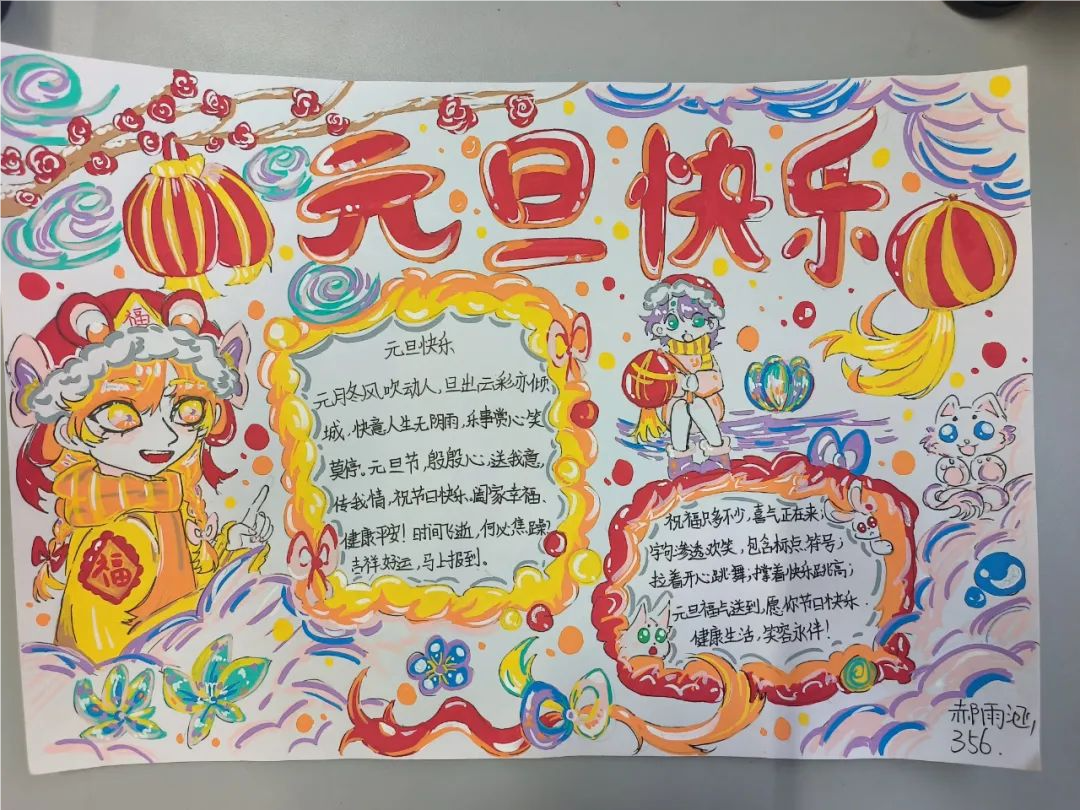 元旦快乐
福
元旦快乐
元月冬风吹动人，旦出云彩亦倾
城，快意人生无阴雨，乐事赏心笑
莫停。元旦节，殷殷心；送我意，
传我情，祝节日快乐。阖家幸福、
健康平安！时间飞逝，何必焦躁？
吉祥好运，马上报到。
福
祝福只多不少，喜气正在来；
字句渗透欢笑，包含标点符号；
拉着开心跳舞；撑着快乐跳高；
元旦福气送到，愿你节日快乐.
健康生活，笑容永伴！
郝雨
356.